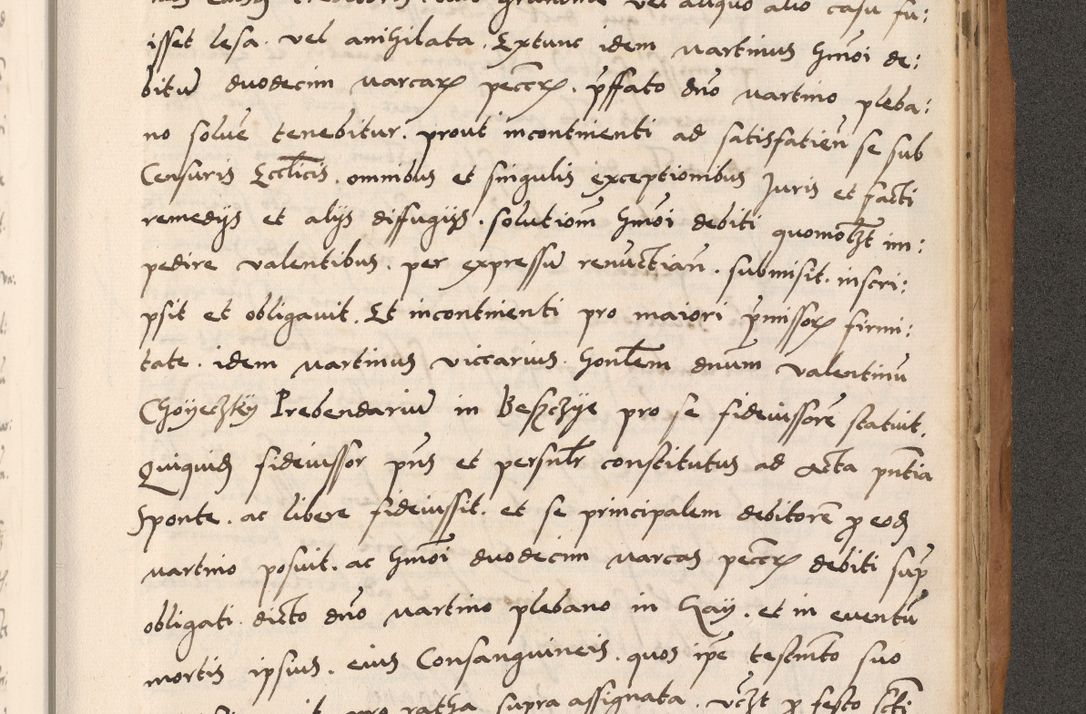 vel aliquo alio casu fu:
isset lesa. vel anihilata. Extunc idem martinus hmoi de:
bitum duodecim marcarum peccrum. prffato dno martino pleba:
no solue tenebitur. prout incontinenti ad satisfatien se sub
Censuris Eccliicis. omnibus et singulis exceptionibus Juris et facti
remedijs et alijs diffugijs. solutionem hmoi debiti quomolzt im:
pedire valentibus. per expressum renuctian. submisit. inscri:
psit et obligauit. Et incontinenti pro maiori pmissorum firmi:
tate. idem martinus viccarius. honlem dnum valentinu
Choyeczky Prebendarium in Beszczye pro se fideiussorem statuit.
Quiquid fideiussor pns et persnlr constitutus ad acta pntia
Sponte. ac libere fideiussit. et se principalem debitorem pro eod
martino posuit. ac hmoi duodecim marcas peccrum debiti sup
obligati. dicto dno martino plebano in Kay. et in euentu
mortis ipsius. eius Consanguineis. quos ipse testmto suo
pro ratha supra assignata. vczt pro festo scti